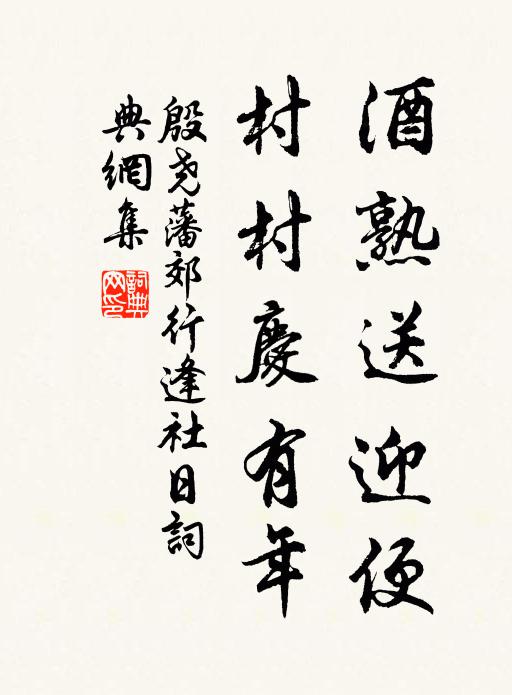 酒熟送迎便
村村慶有年
殷尧藩郊行逢社日詞
典網集
詞典網印